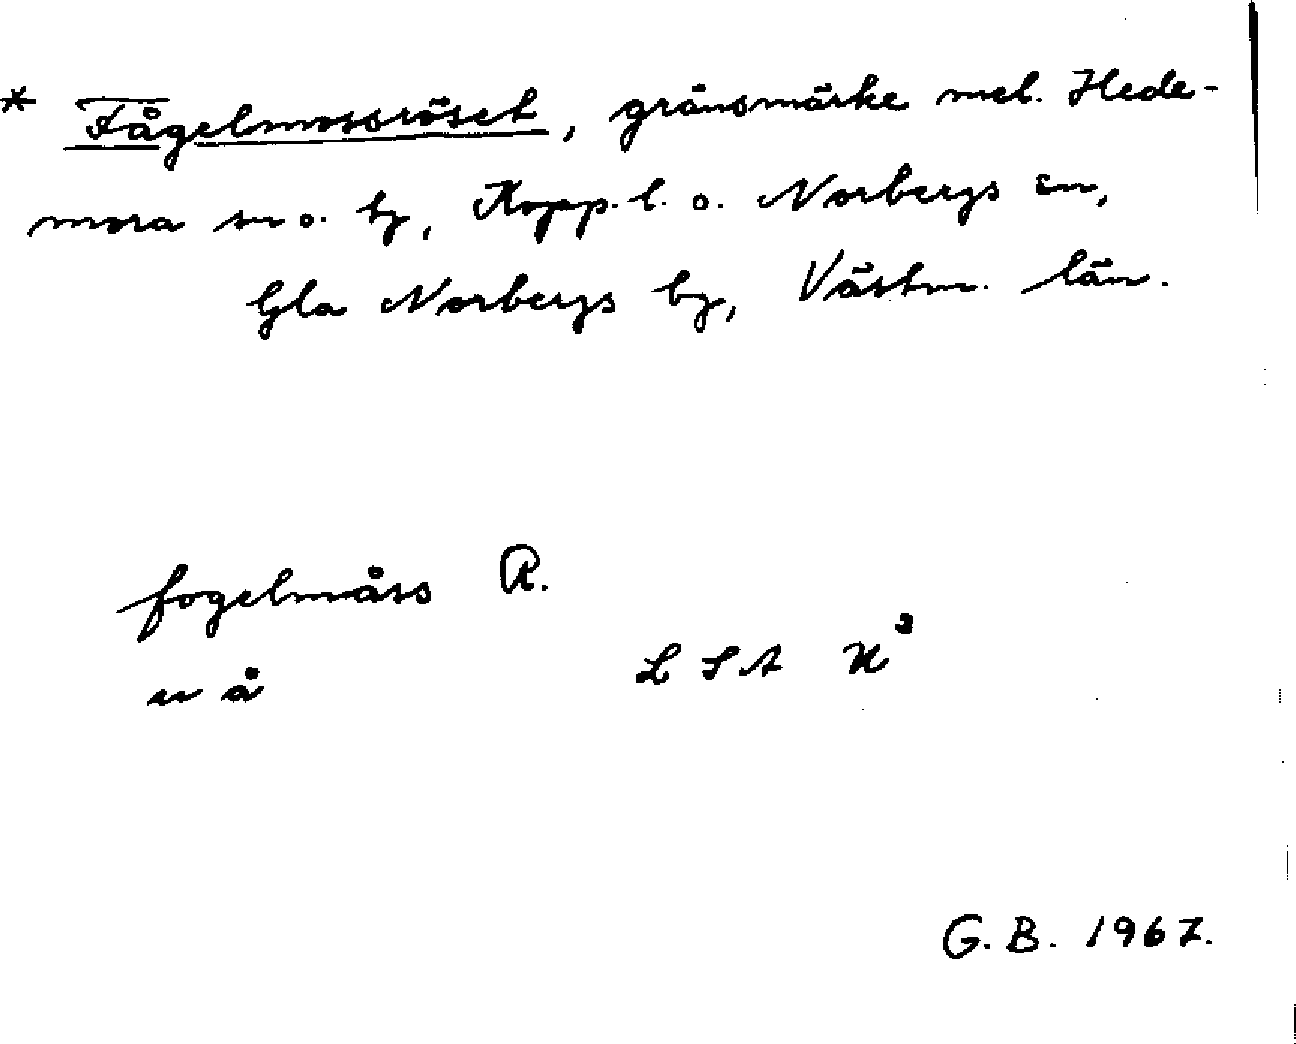 * Fågelmossröset, gränsmärke mel. Hede-
mora sn o. bg, Kopp. l. o. Norbergs sn,
Gla Norbergs bg, Västm. län.
fogelmåss R.
u å
L S A U³
G. B. 1967.